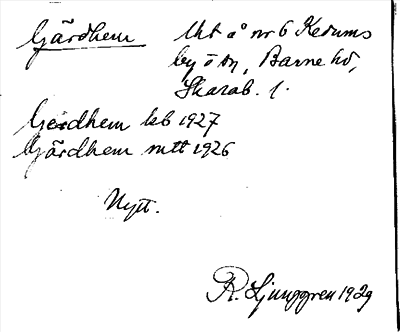 Gärdhem Uht å nr 6 Kedums
by ö tn, Barne hd,
Skarab. l.
Gerdhem leb 1927
Gärdhem mtt 1926
Nytt.
R. Ljunggren 1929